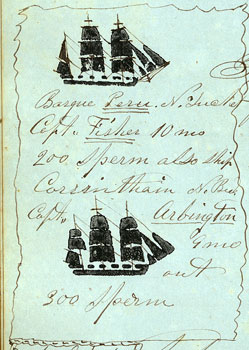 Barque Peru, Nantucket
Capt. Fisher 10 mo
200 Sperm also ship
Corrinthain N. Bed
Capt. Arbington
9 mo
out
300 Sperm